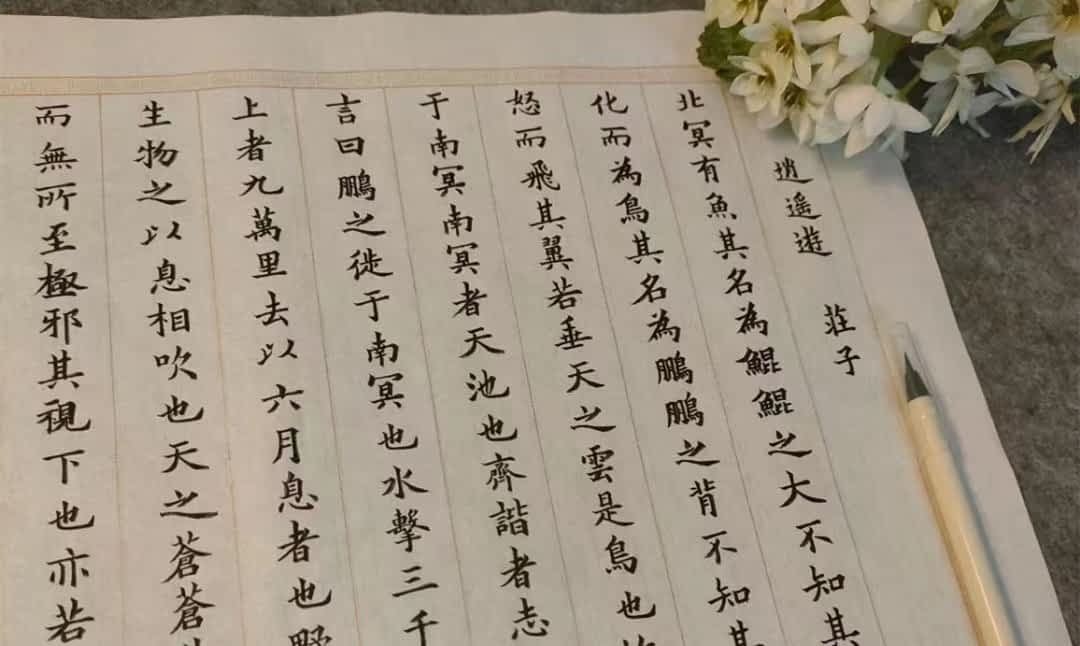 逍遙遊 莊子
北冥有魚其名為鯤鯤之大不知其
化而為鳥其名為鵬鵬之背不知其
怒而飛其翼若垂天之雲是鳥也
于南冥南冥者天池也齊諧者志
言曰鵬之徙于南冥也水擊三千
上者九萬里去以六月息者也野
生物之以息相吹也天之蒼蒼
而無所至極邪其視下也亦若